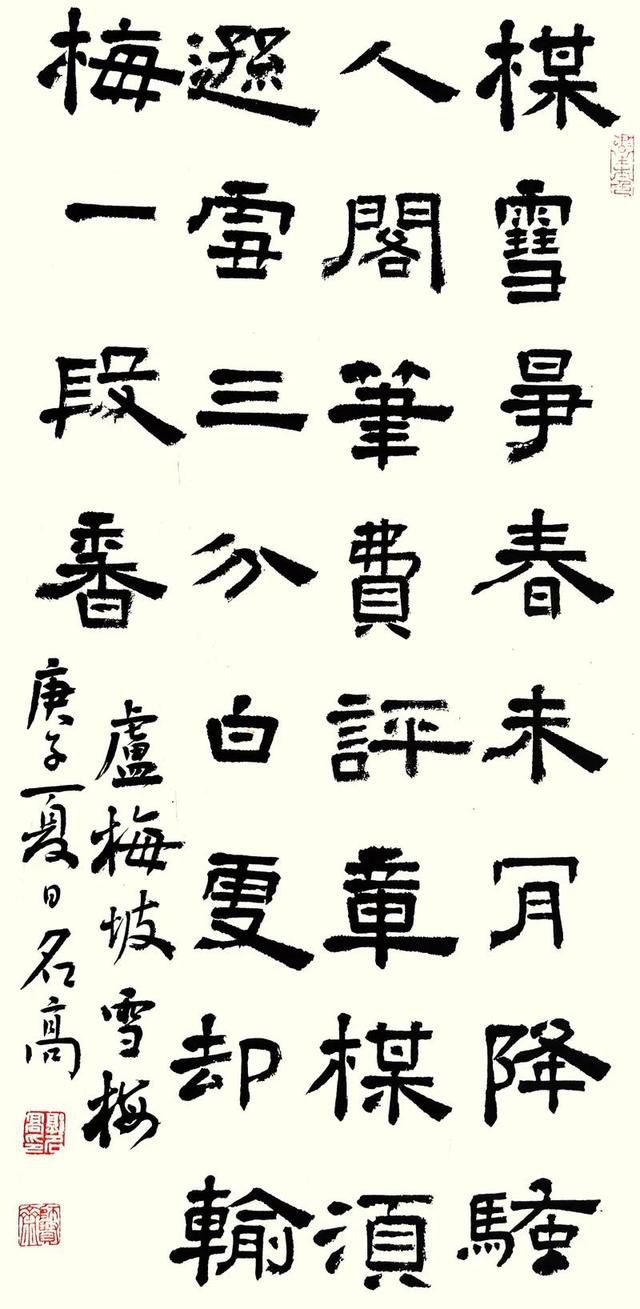 楳雪爭春未肎降騷
人閣筆費評章楳須
遜雪三分白雪却輸
梅一段香
盧梅坡雪梅
庚子夏日名高